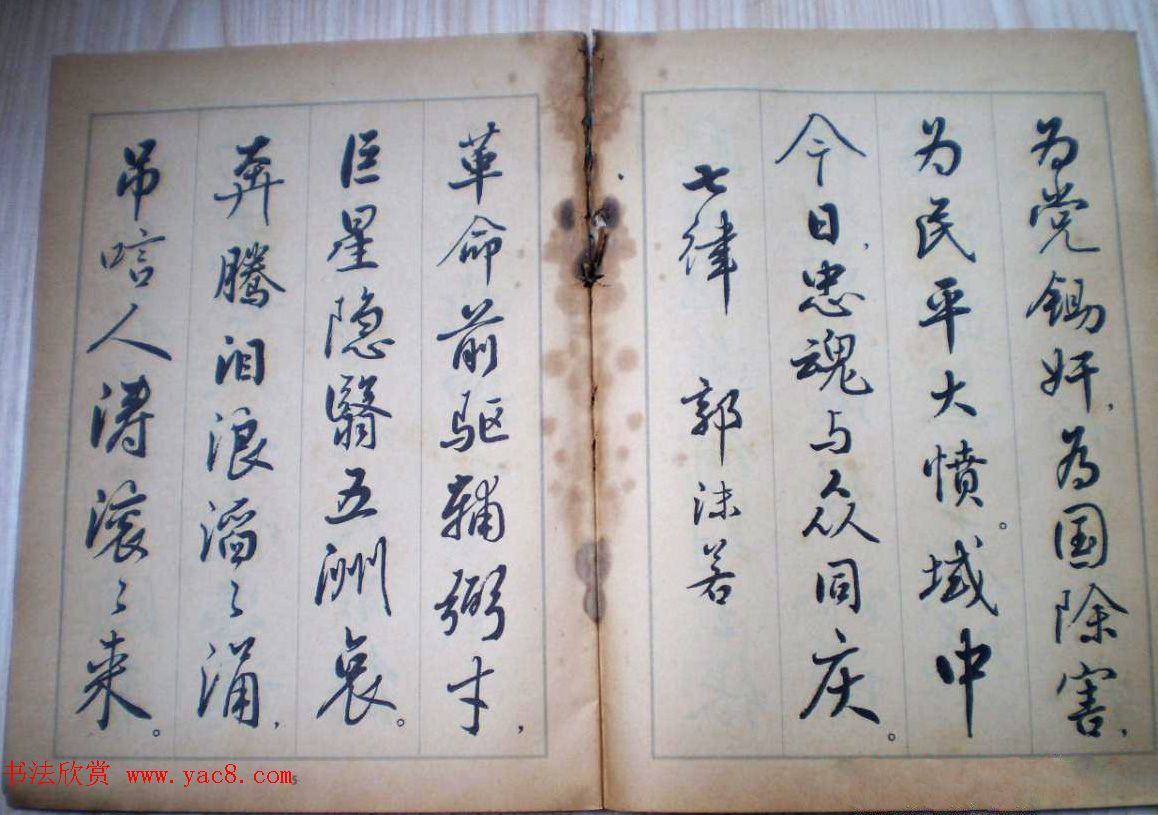 为党锄奸,为国除害,
为民平大愤。域中
今日,忠魂与众同庆。
七律 郭沫若
革命前驱辅弼才,
巨星隐翳五洲哀。
奔腾泪浪滔〻涌,
吊唁人涛滚〻来。
书法欣赏 www.yac8.com
5